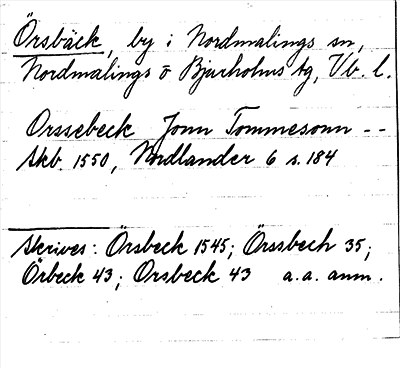 Örsbäck, by i Nordmalings sn,
Nordmalings o Bjurholms tg, Vb. l.
Orssebeck Jonn Tommesonn --
Skb. 1550, Nordlander 6 s. 184
Skrives: Örsbeck 1545; Örssbech 35;
Örbeck 43; Orsbeck 43 a.a. anm.